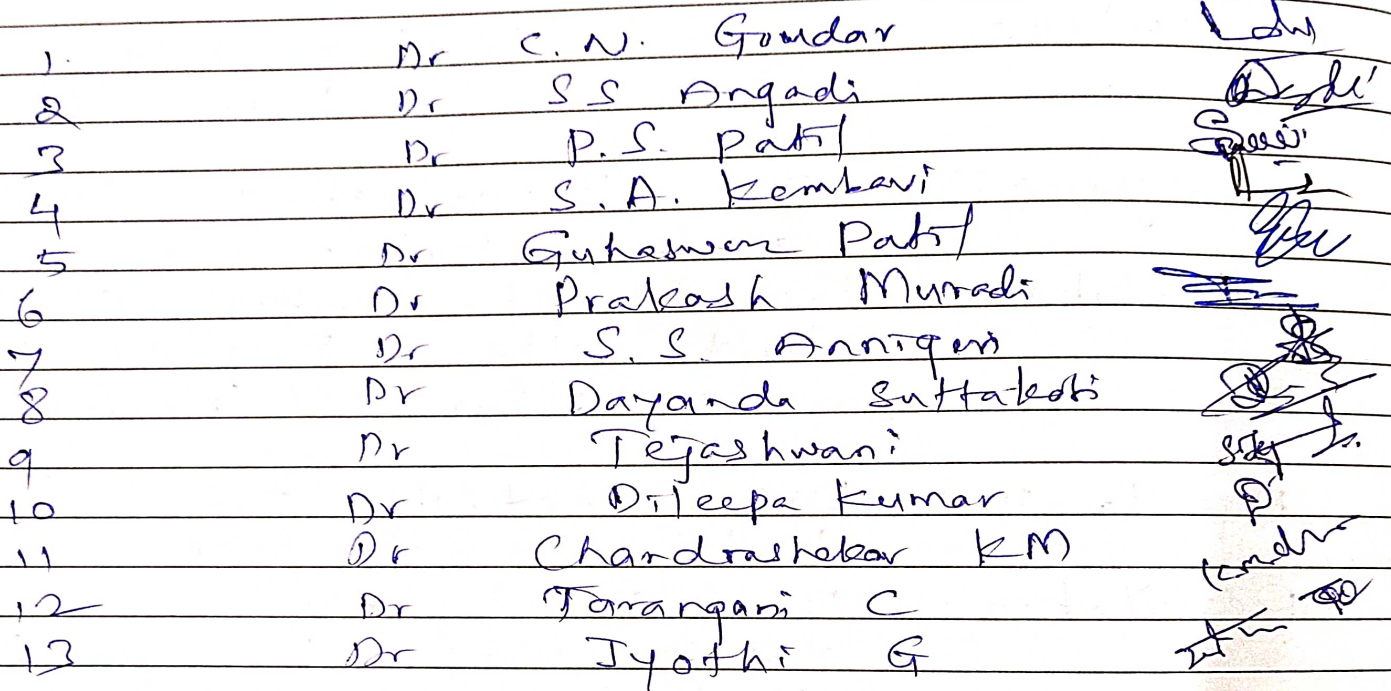 1. Dr C. N. Goudar
2 Dr S S Angadi
3 Dr P. S. Patil
4 Dr S. A. Kembavi
5 Dr Guheswar Patil
6 Dr Prakash Muradi
7 Dr S. S. Annigeri
8 Dr Dayanda Suttakoti
9 Dr Tejashwani
10 Dr Dileepa Kumar
11 Dr Chandrashekar KM
12 Dr Tarangani C
13 Dr Jyothi G